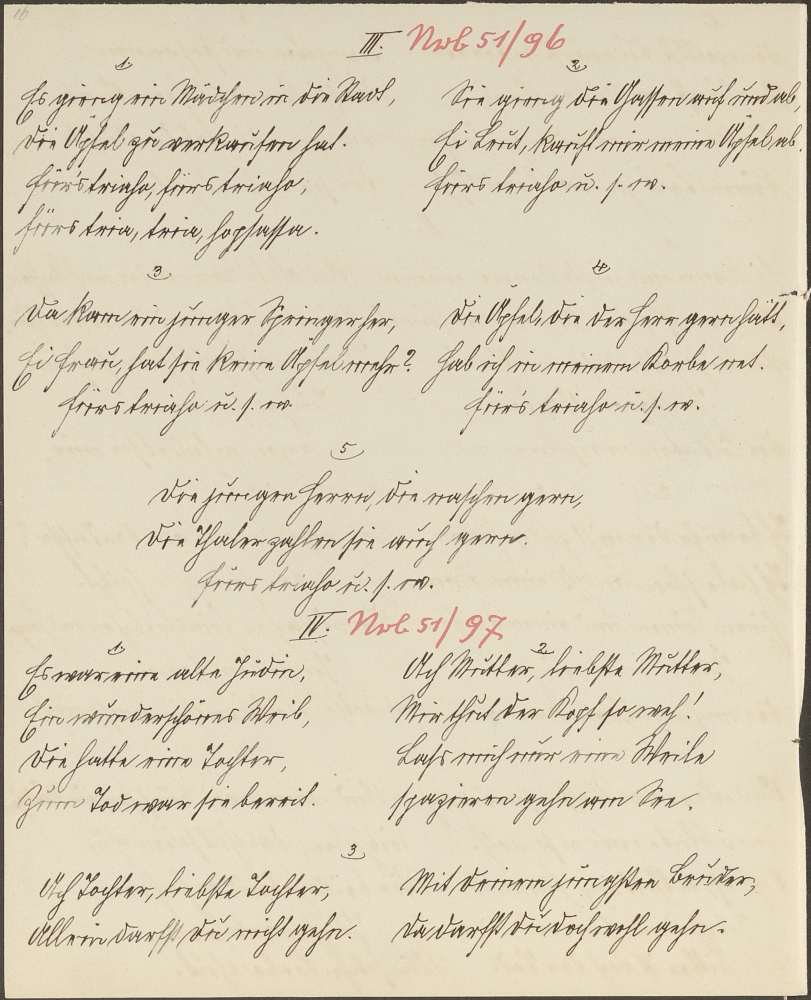 16
III. Nrb 51/96
1
Es gieng ein Mädchen in die Stadt,
Die Äpfel zu verkaufen hat.
Fiirs triaho, fiirs triaho,
Fiirs tria, tria, hopsassa.
2
Sie gieng die Gassen auf und ab,
Ei Leut, kauft mir meine Äpfel ab.
Fiirs triaho u. s. w.
3
Da kam ein junger Springer her,
Ei Frau, hat sie keine Äpfel mehr?
Fiirs triaho u. s. w.
4
Die Äpfel, die der Herr gern hätt,
Hab ich in meinem Korbe net.
Fiirs triaho u. s. w.
5
Die jungen Herrn, die naschen gern,
Die Thaler zahlen sie auch gern.
Fiirs triaho u. s. w.
IV. Nrb 51/97
1
Es war eine alte Judin,
Ein wunderschönes Weib,
Die hatte eine Tochter,
Zum Tod war sie bereit.
2
Ach Mutter, liebste Mutter,
Mir thut der Kopf so weh!
Lass mich nur eine Weile
spazieren gehn am See.
3
Ach Tochter, liebste Tochter,
Allein darfst du nicht gehn.
Mit deinem jungsten Bruder,
Da darfst du doch wohl gehn.